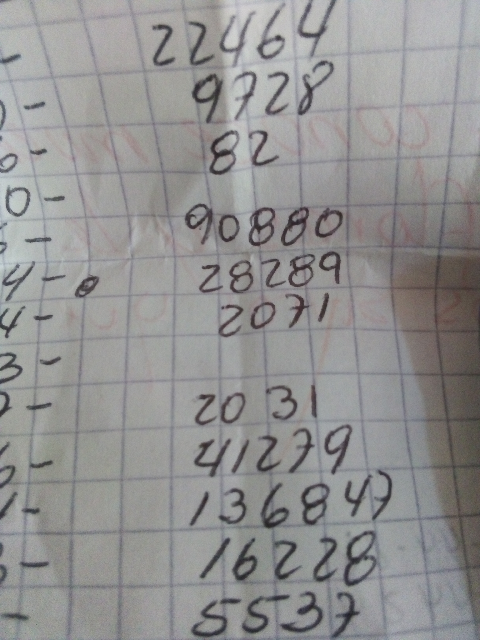 - 22464
- 9728
- 82
0-
- 90880
4- 28289
4- 2071
3-
- 2031
- 41279
- 136847
- 16228
- 5537